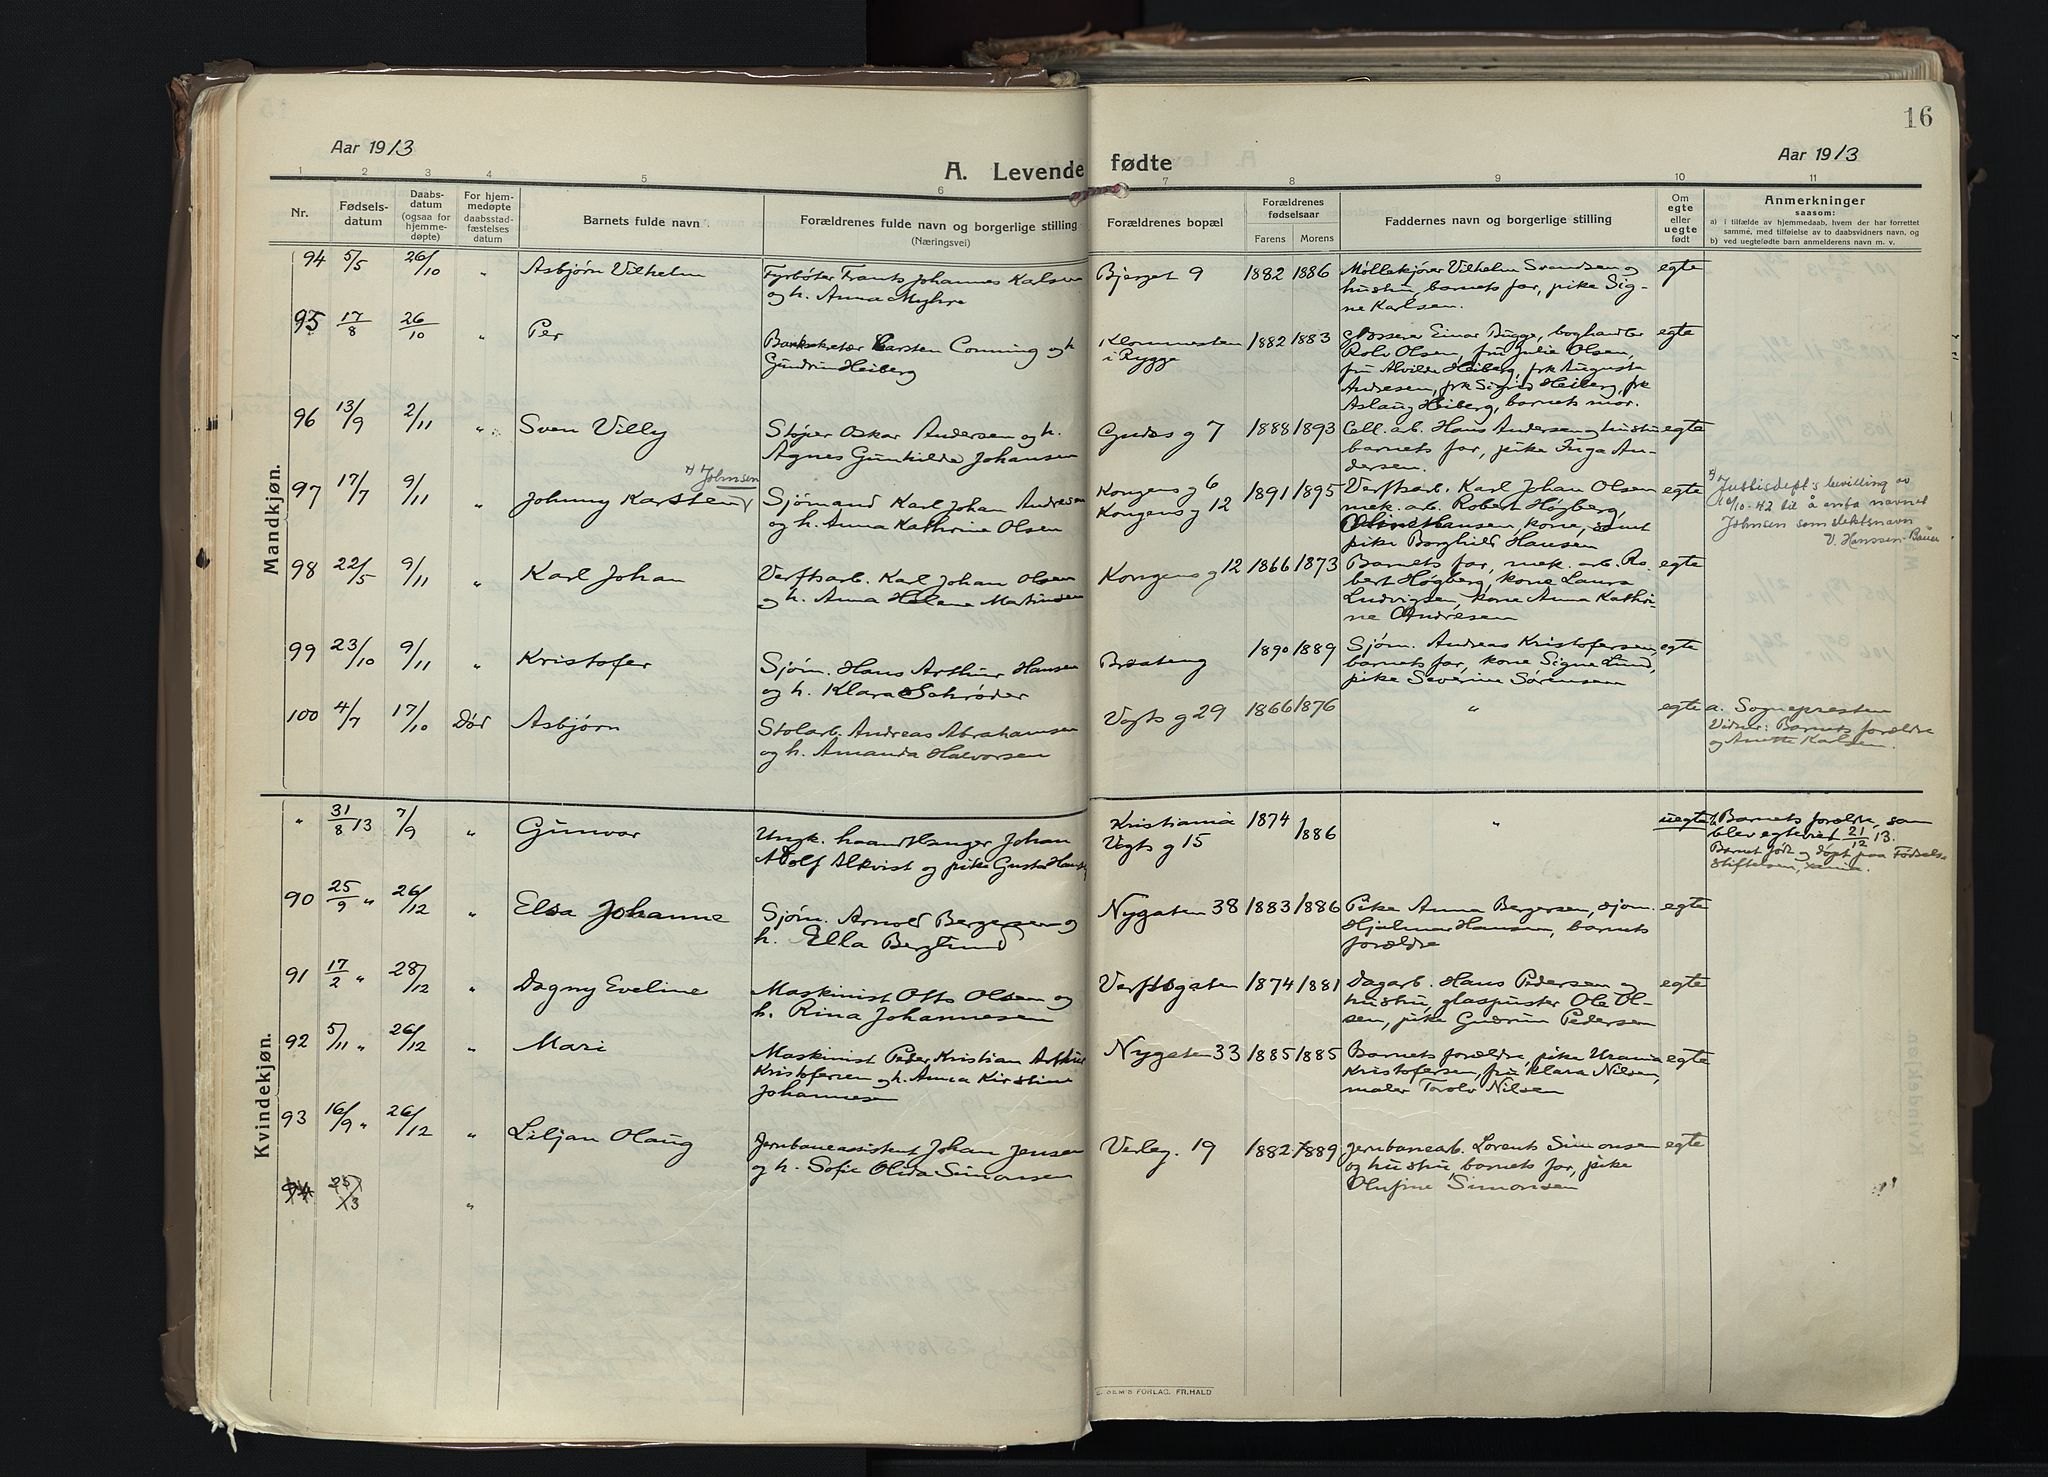 16
Aar 1913
A. Levende fødte
Aar 1913
1 2 3 4 5 6 7 8 9 10 11
Nr.
Fødsels-
datum
Daabs-
datum
(ogsaa for
hjemme-
døpte)
For hjem-
medøpte
daabsstad-
fæstelses
datum
Barnets fulde navn
Forældrenes fulde navn og borgerlige stilling
(Næringsvei)
Forældrenes bopæl
Forældrenes
fødselsaar
Farens Morens
Faddernes navn og borgerlige stilling
Om
egte
eller
uegte
født
Anmerkninger
saasom:
a) i tilfælde av hjemmedaab, hvem der har forrettet
samme, med tilføielse av to daabsvidners navn, og
b) ved uegtefødte barn anmelderens navn m. v.
Mandkjøn.
94 5/5 26/10 " Asbjørn Vilhelm
Fyrbøter Frants Johannes Karlsen
og h. Anna Myhre
Bjerget 9 1882 1886
Møllekjører Vilhelm Svendsen og
hustru, barnets far, pike Sig-
ne Karlsen.
egte
95 17/8 26/10 " Per
Banksekretær Carsten Conning og h
Gudrun Heiberg
Klommesten
i Rygge
1882 1883
Grosserer Einar Bugge, boghandler
Rolv Olsen, fru Julie Olsen,
fru Alvilde Heiberg, frk Augusta
Andresen, frk Sigrid Heiberg, frk
Aslaug Heiberg, barnets mor.
egte
96 13/9 2/11 " Sven Villy
Støper Oskar Andersen og h.
Agnes Gunhilde Johansen
Gudes g 7 1888 1893
Cell. arb. Hans Andersen og hustru
barnets far, pike Inga An-
dersen.
egte
97 17/7 9/11 " Johnny Karsten x) Johnsen
Sjömand Karl Johan Andresen
og h. Anna Kathrine Olsen
Kongens g 6
Kongens g 12
1891 1895
Verftsarb. Karl Johan Olsen
mek. arb. Robert Høgberg,
Hansen, kone, samt
pike Borghild Hansen
egte
x) Justisdept's bevilling av
16/10-42 til å anta navnet
Johnsen som slektsnavn
V. Hanssen-Bauer
98 22/5 9/11 " Karl Johan
Verftsarb. Karl Johan Olsen
og h. Anna Helene Martinsen
Kongens g 12 1866 1873
Barnets far, mek. arb. Ro-
bert Høgberg, kone Laura
Ludvigsen, kone Anna Kathri-
ne Andresen
egte
99 23/10 9/11 " Kristofer
Sjøm. Hans Arthur Hansen
og h. Klara Schrøder
Braateng 1890 1889
Sjøm. Andreas Kristofersen,
barnets far, kone Signe Lund,
pike Severine Sørensen
egte
100 4/7 17/10 Død Asbjørn
Stolarb. Andreas Abrahamsen
og h. Amanda Halvorsen
Vogts g 29 1866 1876 " egte
a. Sognepresten
Vidner: Barnets forældre
og Anette Karlsen.
Kvindekjøn.
" 31/8 13 7/9 " Gunvor
Ungk. haandlanger Johan
Adolf Alkvist og pike Gusta Hansen
Kristiania
Vogts g 15
1874 1886 " uegte
b. Barnets forældre, som
blev egteviet 21/12 13.
Barnet født og døpt paa Fødsels-
stiftelsen, Xania.
90 25/9 " 26/12 " Elsa Johanne
Sjøm. Arnold Bergersen og
h. Ella Berglund
Nygaten 38 1883 1886
Pike Anna Bergersen, sjøm.
Hjalmar Hansen, barnets
forældre
egte
91 17/2 " 28/12 " Dagny Eveline
Maskinist Otto Olsen og
h. Rina Johannesen
Verftsgaten 1874 1881
Dagarb. Hans Pedersen og
hustru, glaspuster Ole Ol-
sen, pike Gudrun Pedersen
egte
92 5/11 " 26/12 " Mari
Maskinist Peder Kristian Arthur
Kristofersen og h. Anna Kirstine
Johannesen
Nygaten 33 1885 1885
Barnets forældre, pike Urania
Kristofersen, fru Klara Nilsen,
maler Torolv Nilsen
egte
93 16/9 " 26/12 " Liljan Olaug
Jernbaneassistent Johan Jensen
og h. Sofie Olivia Simonsen
Verleg. 19 1882 1889
Jernbanearb. Lorents Simonsen
og hustru, barnets far, pike
Olufine Simonsen
egte
94 "
E. SEM'S FORLAG. FR.HALD